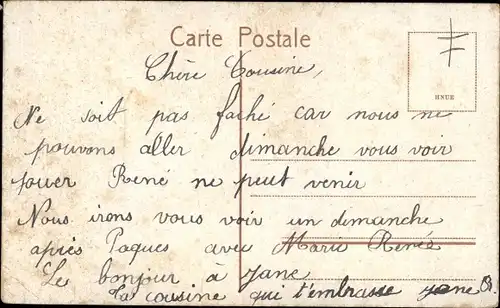 Carte Postale
HNUE
Chère Cousine,
Ne soit pas faché car nous ne
pouvons aller dimanche vous voir
jouer René ne peut venir
Nous irons vous voir un dimanche
après Paques avec Marie Renée
Le bonjour à Jane
Ta cousine qui t'embrasse